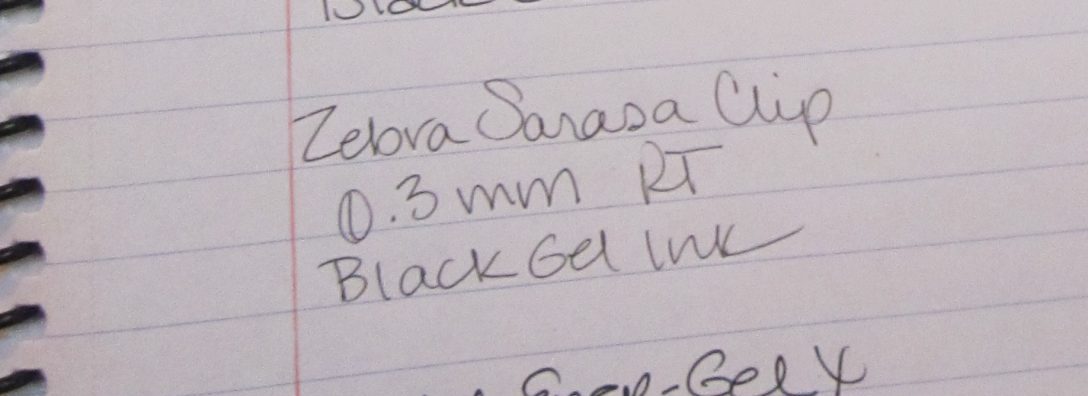 Black
Zebra Sarasa Clip
0.3mm RT
Black Gel Ink
-Gel X